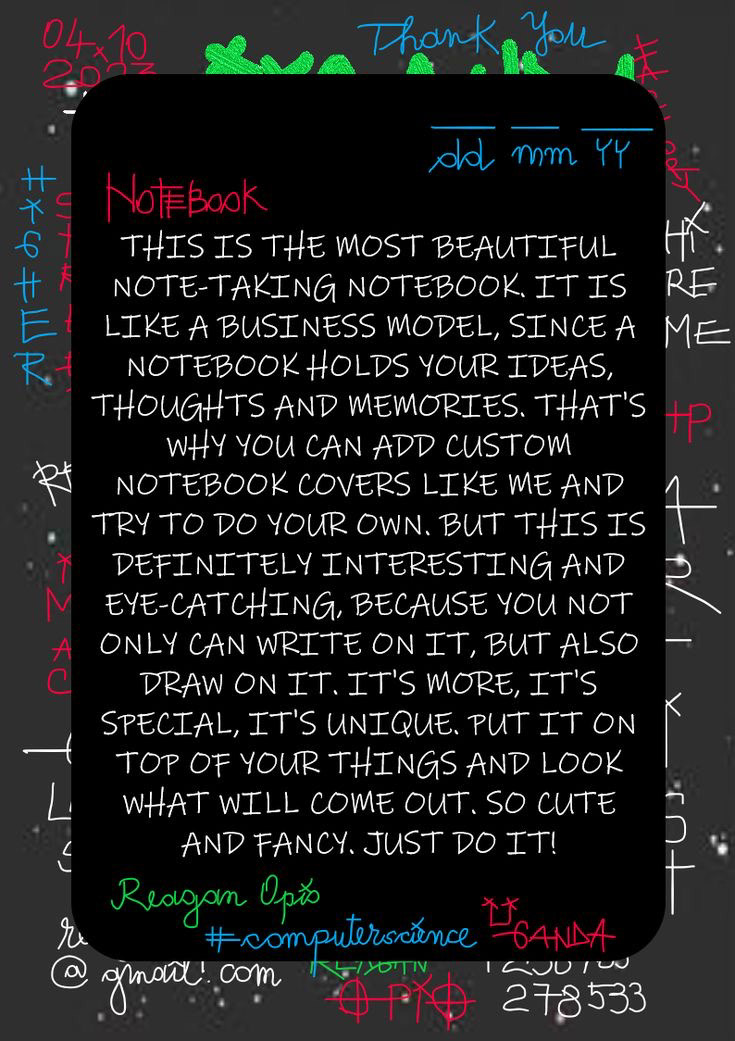 04 10
Thank You
dd mm YY
NOTEBOOK
THIS IS THE MOST BEAUTIFUL
NOTE-TAKING NOTEBOOK. IT IS
LIKE A BUSINESS MODEL, SINCE A
NOTEBOOK HOLDS YOUR IDEAS,
THOUGHTS AND MEMORIES. THAT'S
WHY YOU CAN ADD CUSTOM
NOTEBOOK COVERS LIKE ME AND
TRY TO DO YOUR OWN. BUT THIS IS
DEFINITELY INTERESTING AND
EYE-CATCHING, BECAUSE YOU NOT
ONLY CAN WRITE ON IT, BUT ALSO
DRAW ON IT. IT'S MORE, IT'S
SPECIAL, IT'S UNIQUE. PUT IT ON
TOP OF YOUR THINGS AND LOOK
WHAT WILL COME OUT. SO CUTE
AND FANCY. JUST DO IT!
Reagan Opio
#computerscience UGANDA
@gmail.com
OPIO 278533